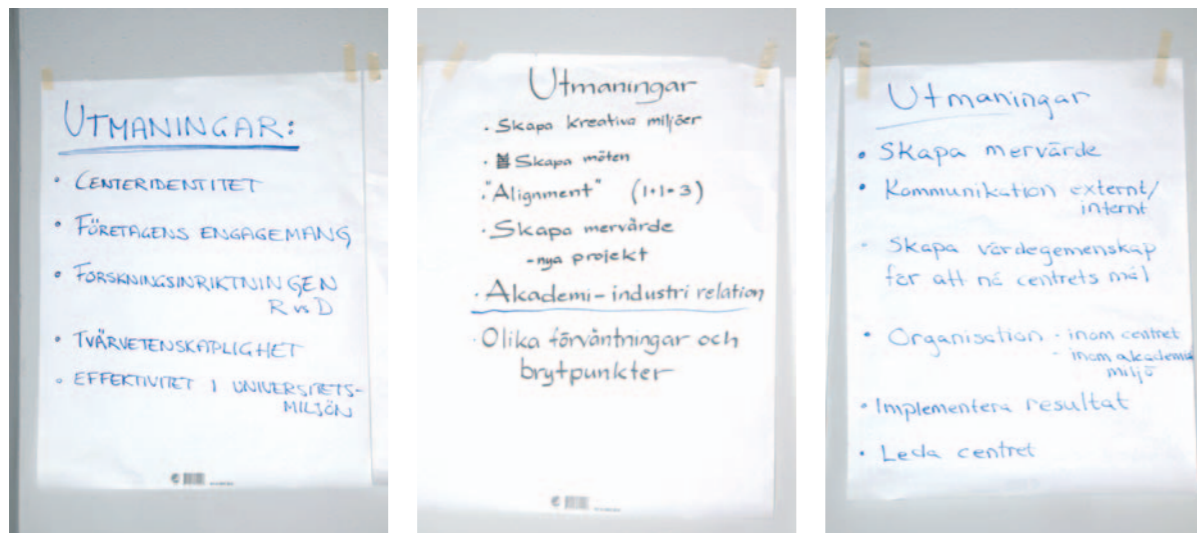 UTMANINGAR:
• CENTERIDENTITET
• FÖRETAGENS ENGAGEMANG
• FORSKNINGSINRIKTNINGEN
R vs D
• TVÄRVETENSKAPLIGHET
• EFFEKTIVITET I UNIVERSITETS-
MILJÖN
Utmaningar
• Skapa kreativa miljöer
• Skapa möten
• "Alignment" (1+1=3)
• Skapa mervärde
- nya projekt
• Akademi-industri relation
• Olika förväntningar och
brytpunkter
Utmaningar
• Skapa mervärde
• Kommunikation externt/
internt
• Skapa värdegemenskap
för att nå centrets mål
• Organisation - inom centret
- inom akademisk
miljö
• Implementera resultat
• Leda centret